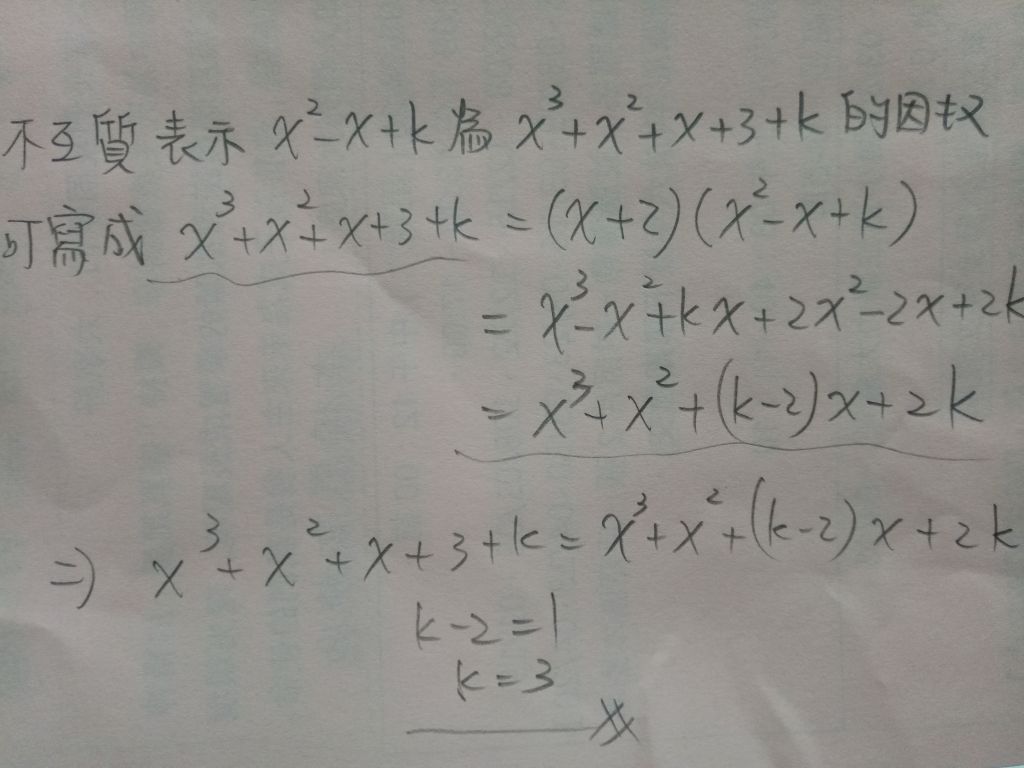 不互質表示 x²-x+k為 x³+x²+x+3+k 的因式
可寫成 x³+x²+x+3+k = (x+2)(x²-x+k)
= x³-x²+kx+2x²-2x+2k
= x³+x²+(k-2)x+2k
⇒ x³+x²+x+3+k = x³+x²+(k-2)x+2k
k-2=1
k=3